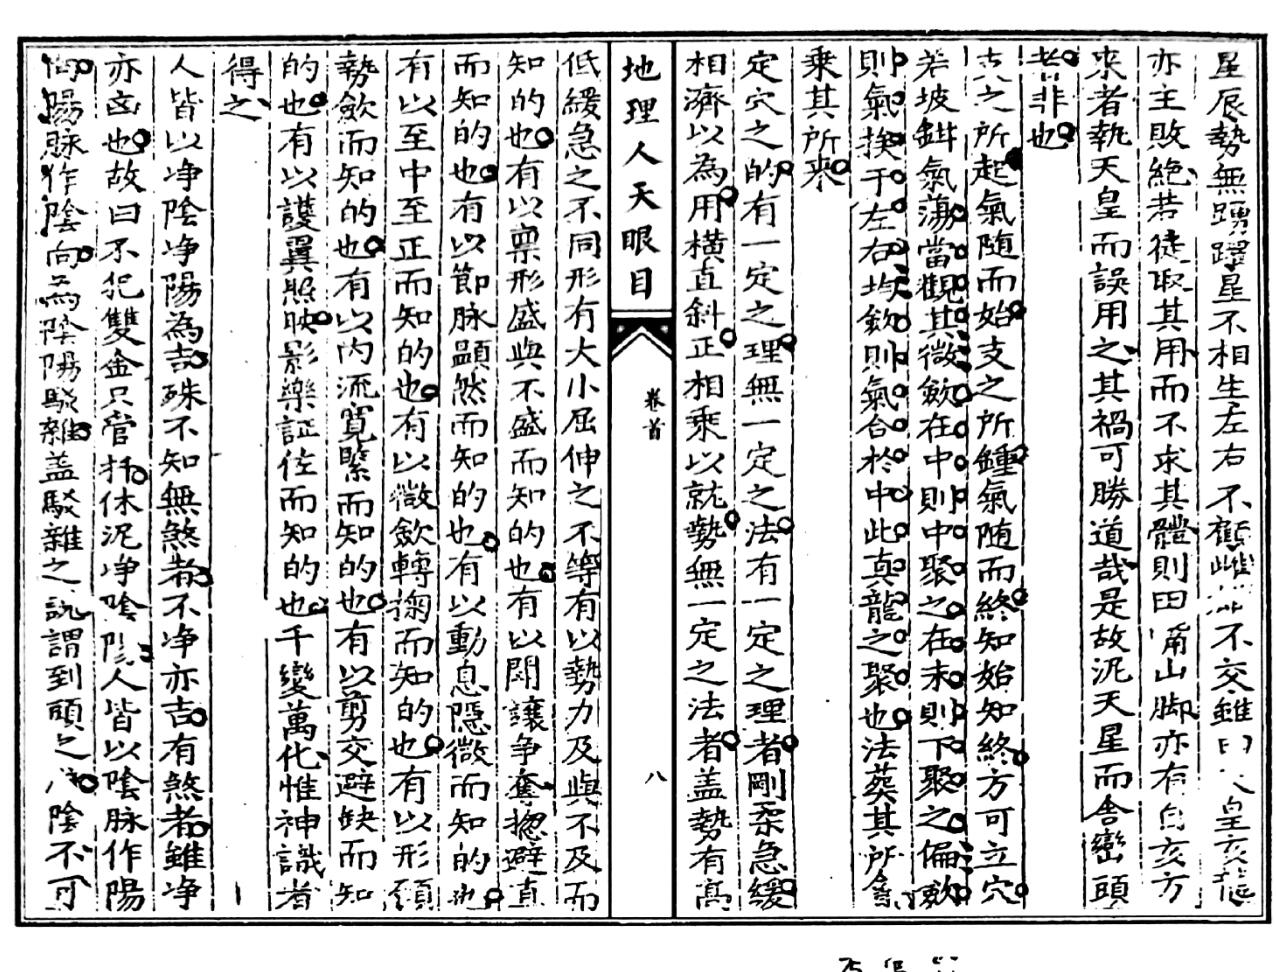 星辰勢無踴躍星不相生左右不顧 不交雖曰 皇亥龍
亦主敗絕若徒取其用而不求其體則田浦山脚亦有自亥方
來者執天皇而誤用之其禍可勝道哉是故泥天星而舍巒頭
者非也
支之所起氣隨而始支之所鍾氣隨而終知始知終方可立穴
若坡斜氣蕩當觀其微歛在中則中聚之在末則下聚之偏歛
則氣挨于左右均歛則氣合於中此真龍之聚也法葬其所會
乘其所來
定穴之的有一定之理無一定之法有一定之理者剛柔急緩
相濟以為用橫直斜正相乘以就勢無一定之法者蓋勢有高
地理人天眼目
卷首
八
低緩急之不同形有大小屈伸之不等有以勢力及與不及而
知的也有以稟形盛與不盛而知的也有以闘讓爭奪揔避直
而知的也有以節脉顕然而知的也有以動息隱微而知的也
有以至中至正而知的也有以微歛轉掬而知的也有以形領
勢歛而知的也有以內流寬緊而知的也有以剪交避缺而知
的也有以護翼照映影樂証佐而知的也千變萬化惟神識者
得之
人皆以净陰净陽為吉殊不知無煞者不净亦吉有煞者雖净
亦凶也故曰不犯雙金只管扦休泥净陰陽人皆以陰脉作陽
向陽脉作陰向為陰陽駁雜蓋駁雜之説謂到頭之 陰不可